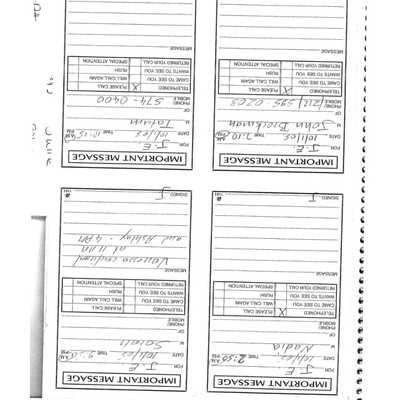 IMPORTANT MESSAGE
FOR J.E.
DATE 10/1/05 TIME 2:50 P.M.
M Nadia
OF
PHONE/
MOBILE
TELEPHONED X PLEASE CALL
CAME TO SEE YOU WILL CALL AGAIN
WANTS TO SEE YOU RUSH
RETURNED YOUR CALL SPECIAL ATTENTION
MESSAGE
SIGNED J
IMPORTANT MESSAGE
FOR J.E.
DATE 10/1/05 TIME
M Sarah
OF
PHONE/
MOBILE
TELEPHONED PLEASE CALL
CAME TO SEE YOU WILL CALL AGAIN
WANTS TO SEE YOU RUSH
RETURNED YOUR CALL SPECIAL ATTENTION
MESSAGE
Vanessa confirmed
at 11 AM
and Ashley - 4 PM
SIGNED J
IMPORTANT MESSAGE
FOR J.E.
DATE 10/1/05 TIME 2:10
M John Brockman
OF
PHONE/
MOBILE (212) 595-0208
TELEPHONED X PLEASE CALL
CAME TO SEE YOU WILL CALL AGAIN
WANTS TO SEE YOU RUSH
RETURNED YOUR CALL SPECIAL ATTENTION
MESSAGE
IMPORTANT MESSAGE
FOR J.E.
DATE 10/1/05 TIME 10:15
M Tatum
OF
PHONE/
MOBILE 574-0400
TELEPHONED X PLEASE CALL
CAME TO SEE YOU WILL CALL AGAIN
WANTS TO SEE YOU RUSH
RETURNED YOUR CALL SPECIAL ATTENTION
MESSAGE